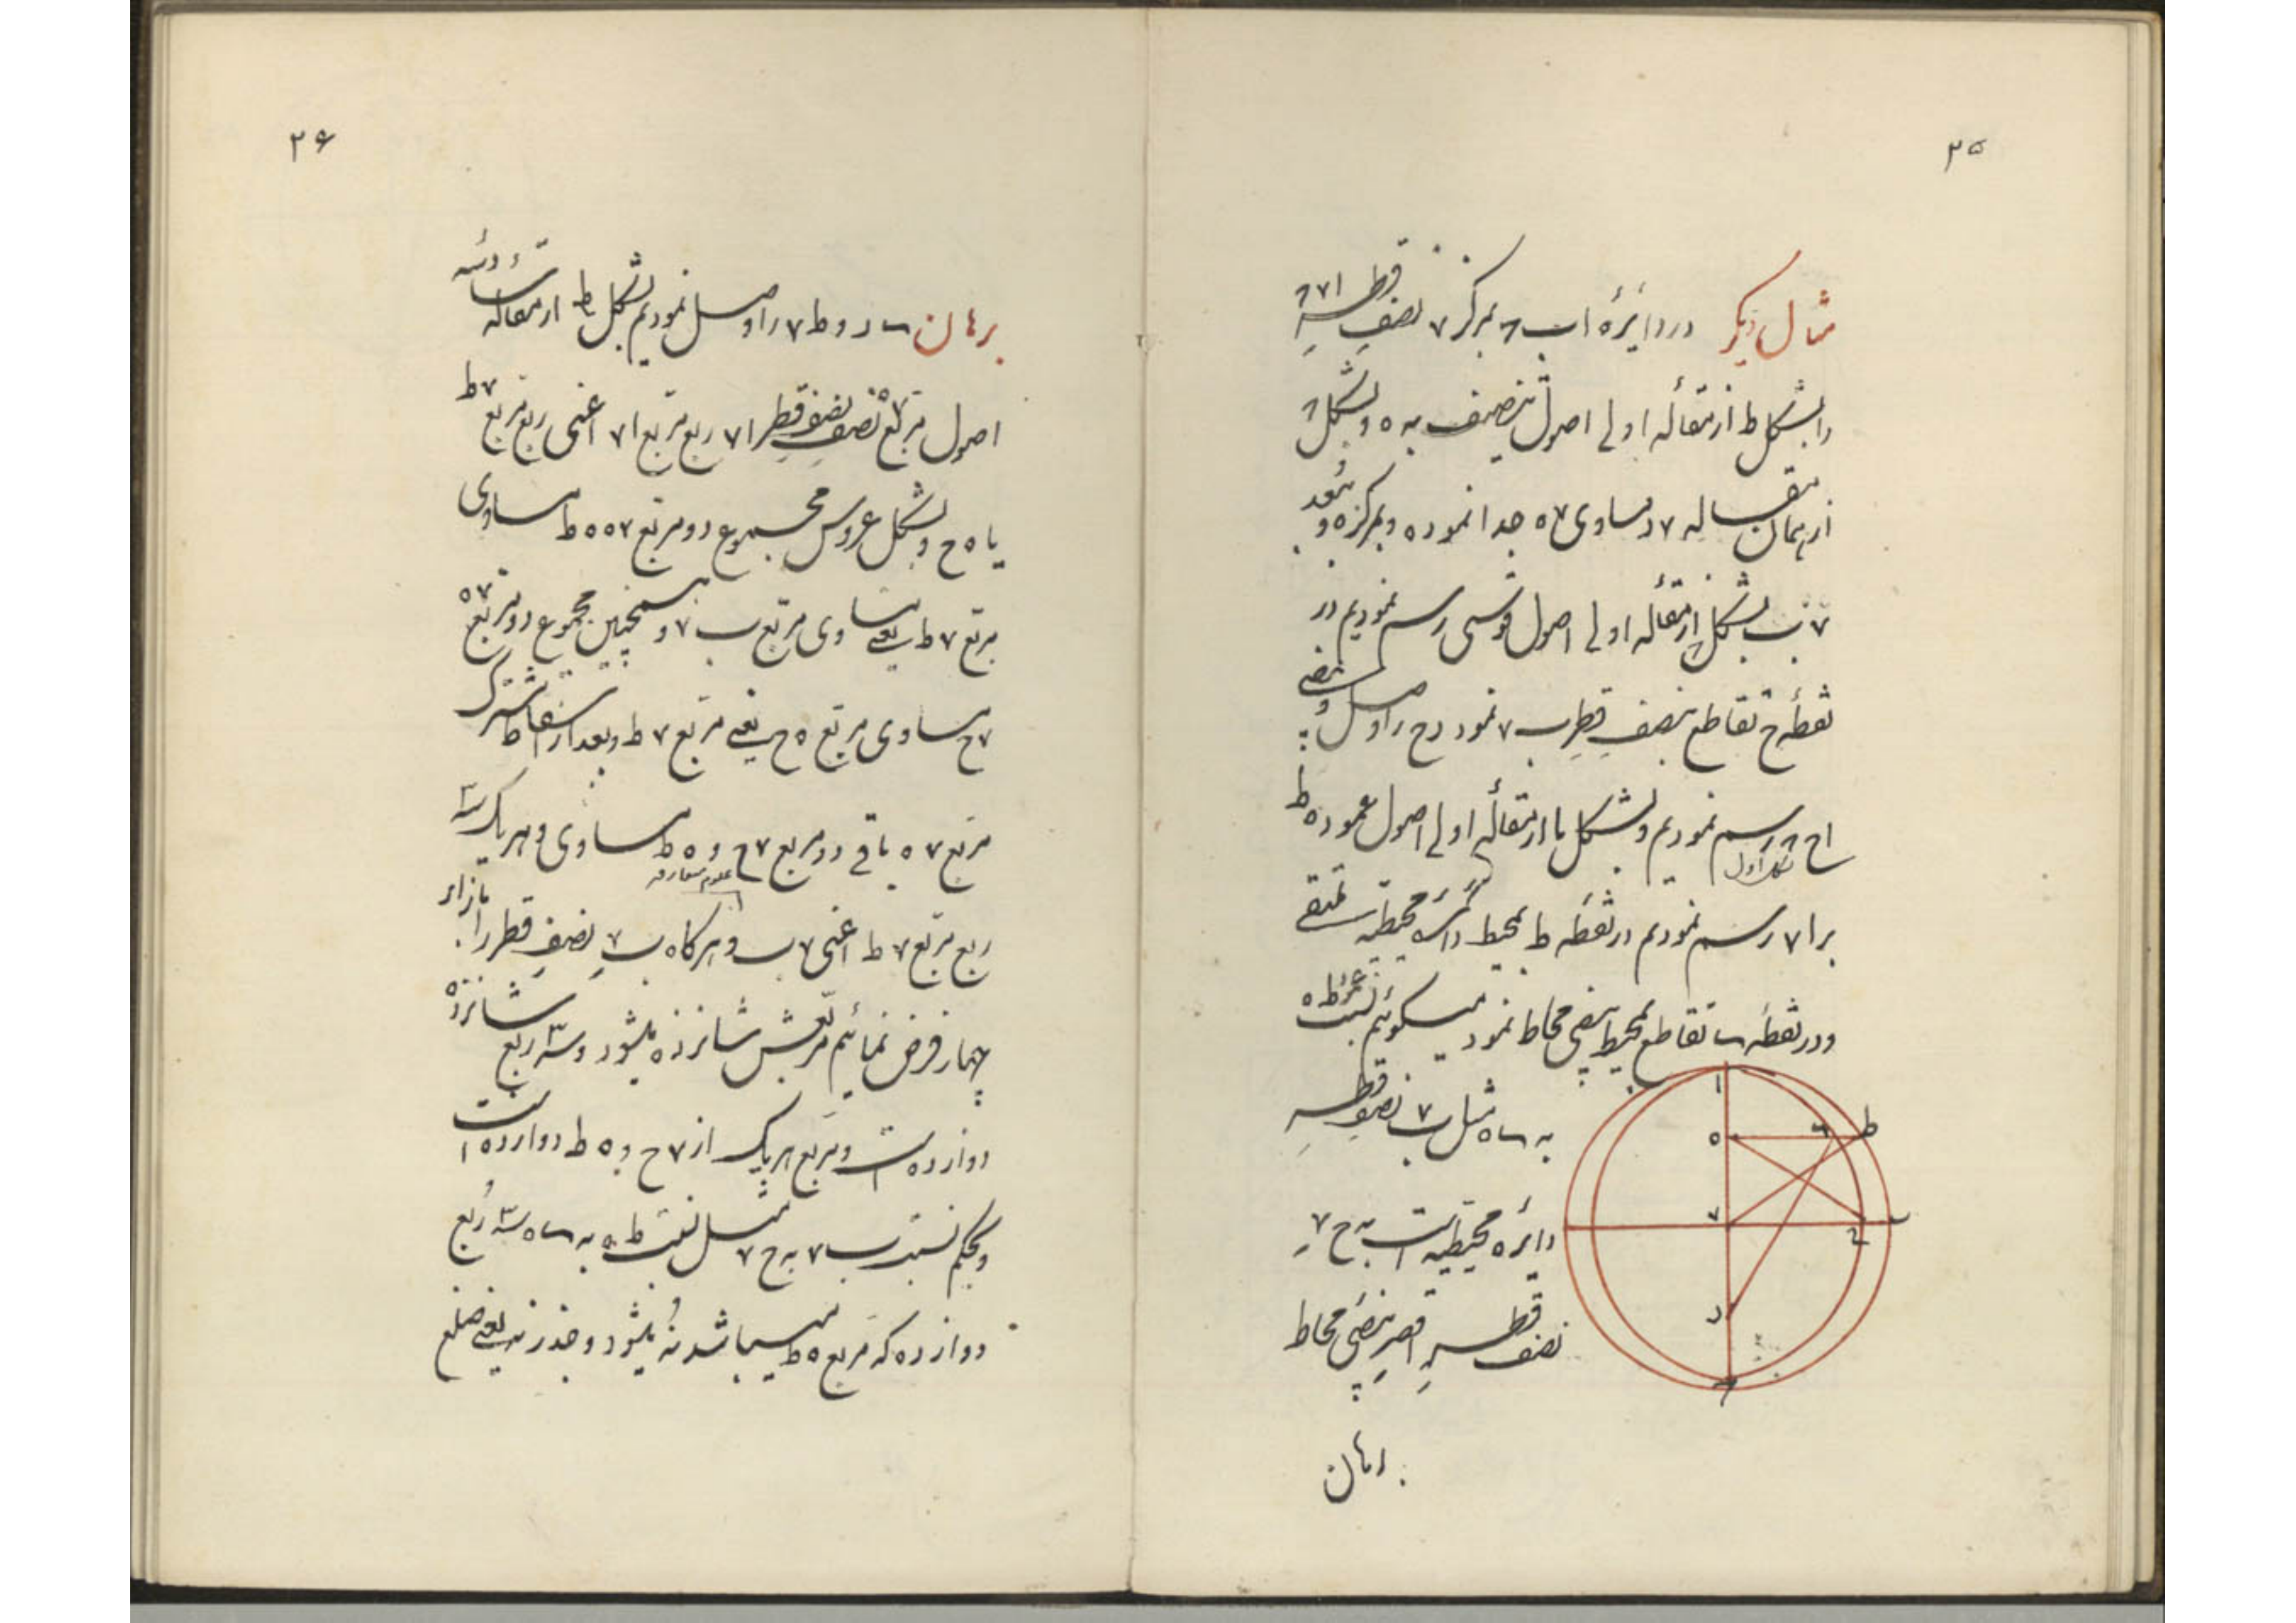 ۲۵
مثال دیگر در دایرهٔ اب۶ بمرکز ۷ نصف قطر ا۷۶
را بشکل ط از مقالهٔ اولی اصول تنصیف به ه و بشکل
از همان مقاله ۷د مساوی ۷ه جدا نموده و بمرکز ه و ببُعد
بشکل از مقالهٔ اولی اصول قوسی رسم نمودیم در
نقطهٔ ح تقاطع بنصف قطر ب۷ نمود دح را وصل و بیضی
اح۶ رسم نمودیم و بشکل یا از مقالهٔ اولی اصول عمود ه ط
شکل اول
بر ا۷ رسم نمودیم در نقطه ط بمحیط دائره محیطیه ملتقی
و در نقطه س تقاطع بمحیط بیضی محاط نمود میگوئیم نسبت ط ه
به س ه مثل ب۷ نصف قطر
دائره محیطیه است به ح۷
نصف قطر اقصر بیضی محاط
برهان
ا
ه
ط
۷
ح
د
۲۶
برهان س د و ط ۷ را وصل نمودیم بشکل ط از مقاله
اصول مربع ۷ه نصف نصف قطر ا۷ ربع مربع ا۷ اعنی ربع مربع ۷ط
یا ه ح و بشکل عروس مجموع دو مربع ۷ه ه ط مساوی
مربع ۷ط یعنی مساوی مربع ب۷ و همچنین مجموع دو مربع ۷ه
۷ح مساوی مربع ه ح یعنی مربع ۷ط و بعد از اسقاط مشترک
مربع ۷ه باقی دو مربع ۷ح و ه ط مساوی و هر یک سه
علوم متعارفه
ربع مربع ۷ط اعنی ۷ب و هرگاه ب۷ نصف قطر را بازاء
چهار فرض نمائیم مربعش شانزده میشود و سه ربع شانزده
دوازده است و مربع هر یک از ۷ح و ه ط دوازده است
و بحکم نسبت ب۷ به ح۷ مثل نسبت ط ه به س ه سه ربع
دوازده که مربع ه ط میباشد نه میشود و جذر نه یعنی ضلع